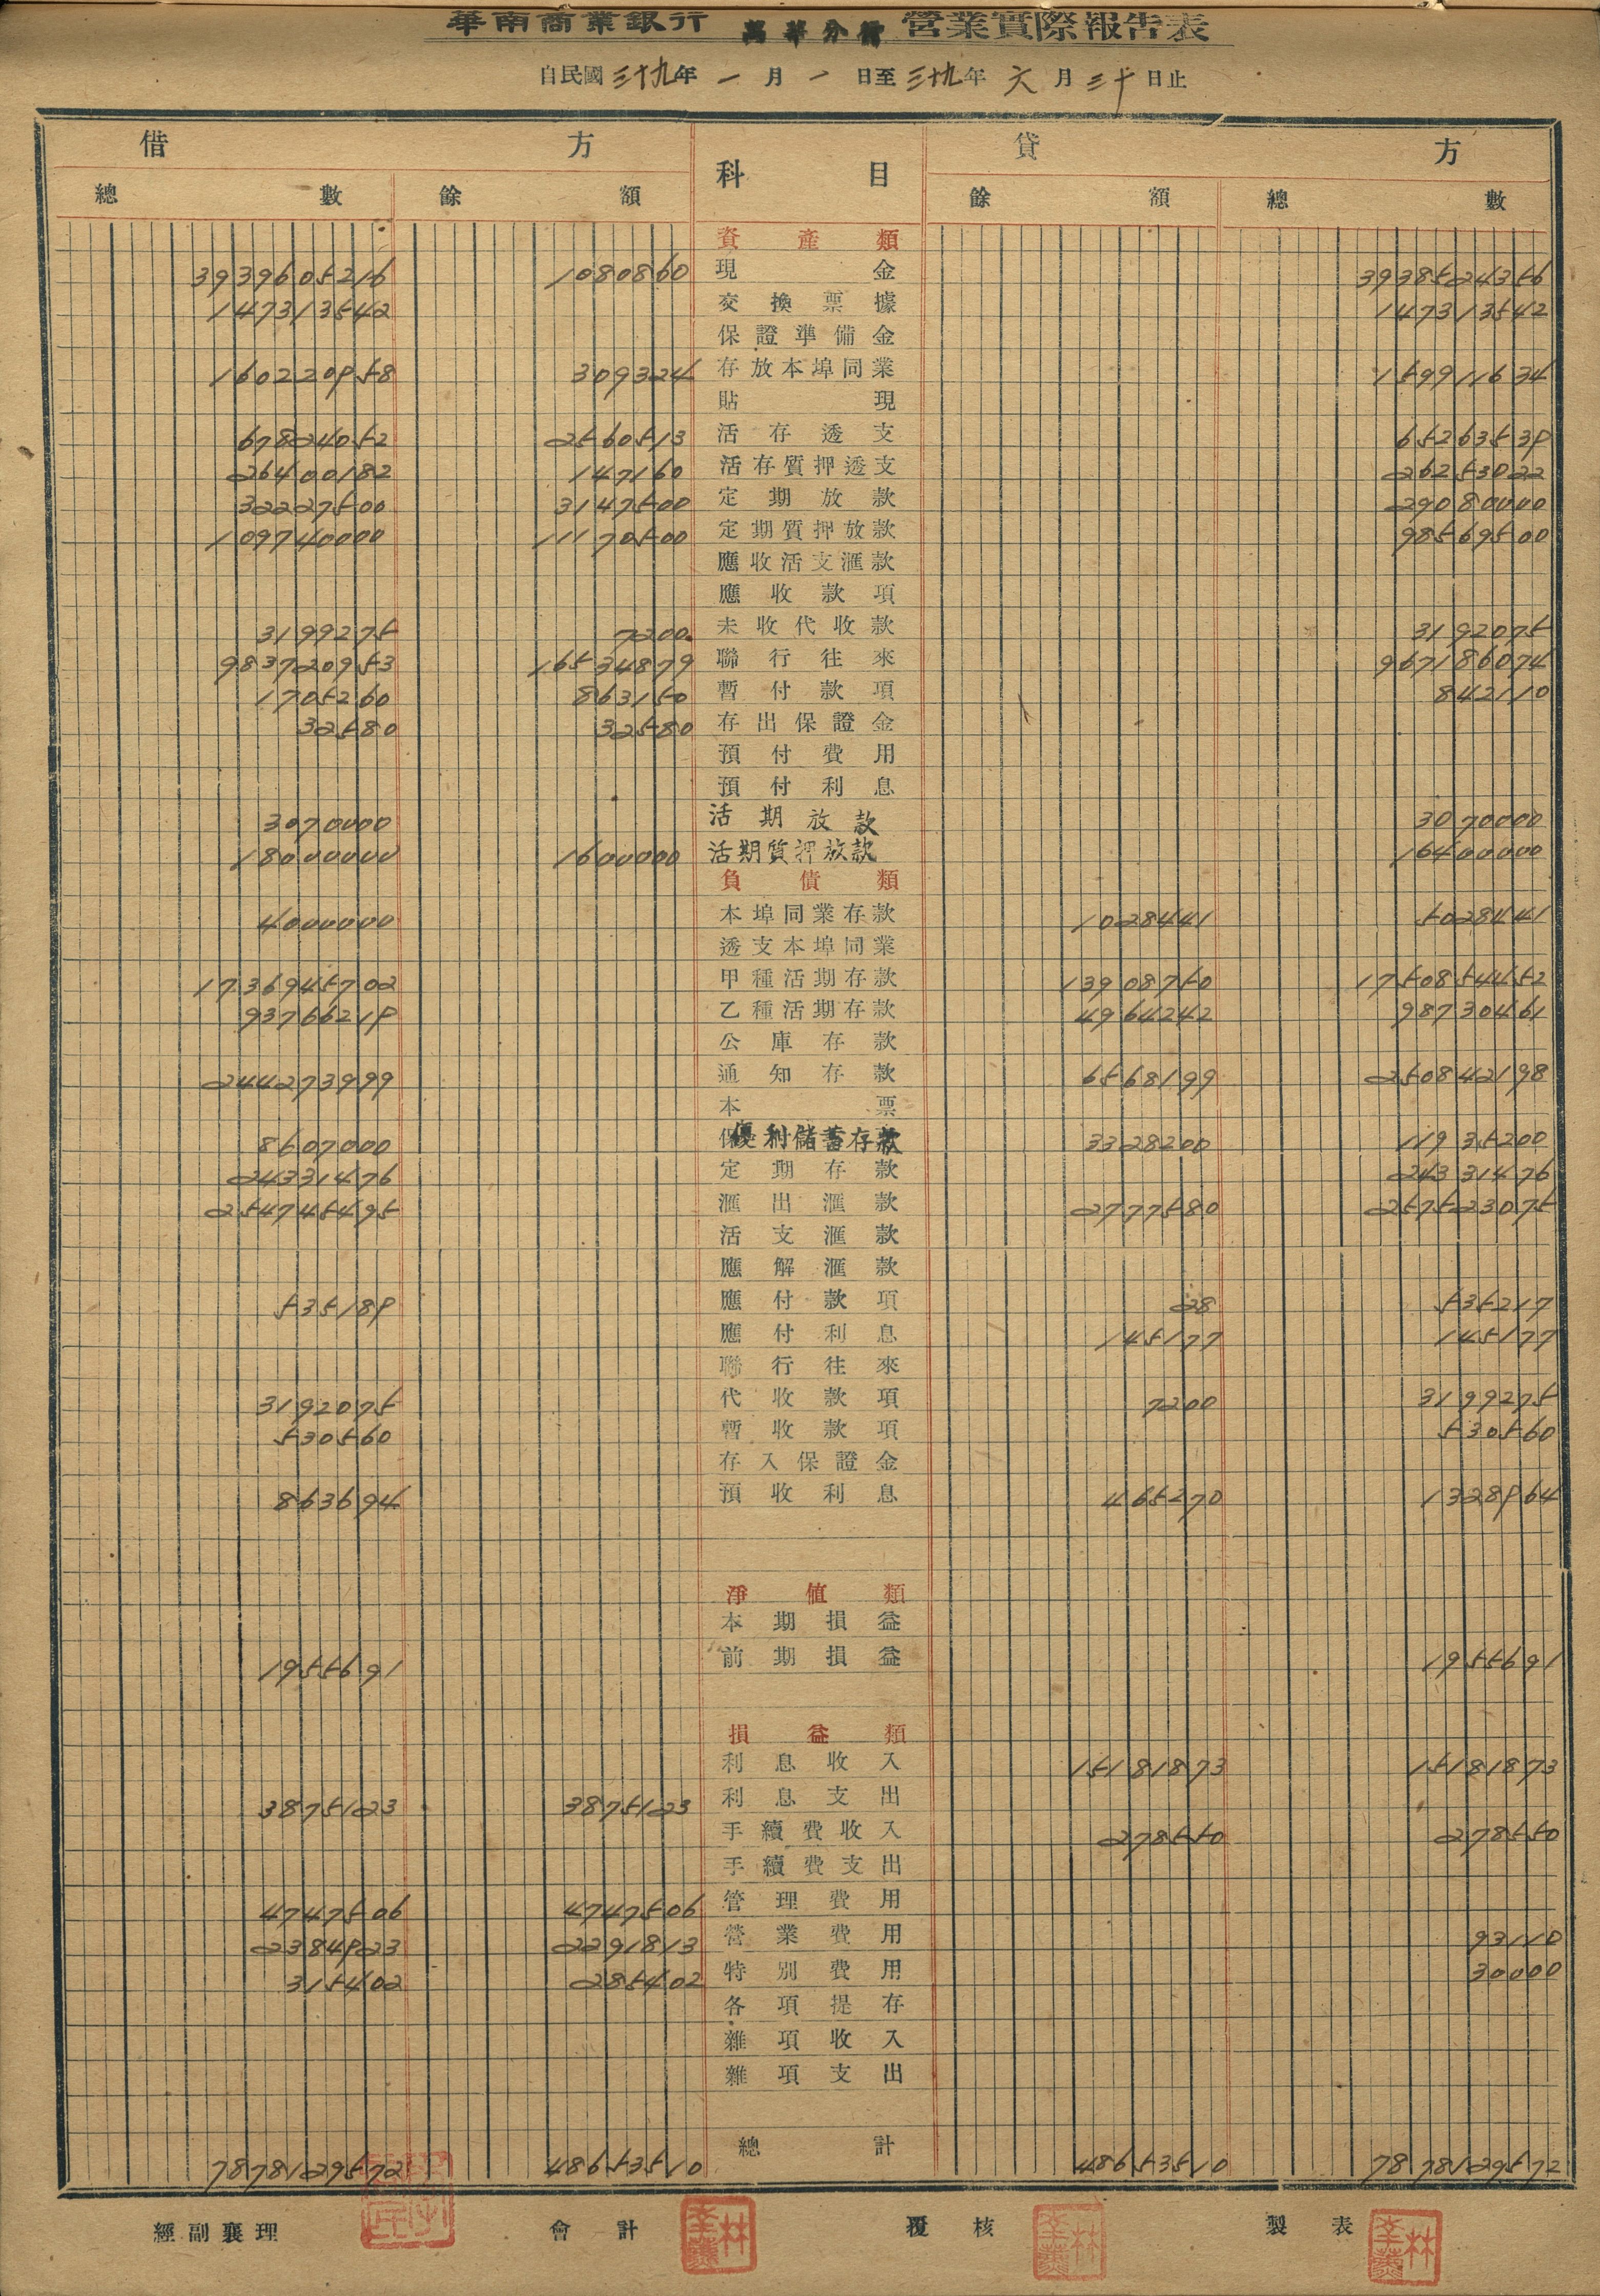 華南商業銀行 萬華分行 營業實際報告表
自民國三十九年一月一日至三十九年六月三十日止
借方 科目 貸方
總數 餘額 餘額 總數
資產類
3939605216 1080860 現金 3938524356
147313542 交換票據 147313542
保證準備金
160220958 309324 存放本埠同業 159911634
貼現
67824052 2560513 活存透支 65263539
26400182 147160 活存質押透支 26253022
32227500 3147500 定期放款 29080000
109740000 11170500 定期質押放款 98569500
應收活支滙款
應收款項
3199275 7200 未收代收款 3192075
983720953 16534879 聯行往來 967186074
1705260 863150 暫付款項 842110
32580 32580 存出保證金
預付費用
預付利息
3070000 活期放款 3070000
18000000 1600000 活期質押放款 16400000
負債類
4000000 本埠同業存款 1028441 5028441
透支本埠同業
1736945702 甲種活期存款 13908750 1750854452
93766219 乙種活期存款 4964242 98730461
公庫存款
244273999 通知存款 6568199 250842198
本票
8607000 優利儲蓄存款 3328200 11935200
24331476 定期存款 24331476
254745495 滙出滙款 2777580 257523075
活支滙款
應解滙款
535189 應付款項 28 535217
應付利息 145177 145177
聯行往來
3192075 代收款項 7200 3199275
530560 暫收款項 530560
存入保證金
863694 預收利息 465270 1328964
淨值類
本期損益
1955691 前期損益 1955691
損益類
利息收入 15181873 15181873
3875123 3875123 利息支出
手續費收入 278550 278550
手續費支出
4747506 4747506 管理費用
2384923 2291813 營業費用 93110
315402 285402 特別費用 30000
各項提存
雜項收入
雜項支出
7878129572 48653510 總計 48653510 7878129572
經副襄理 會計 覆核 製表